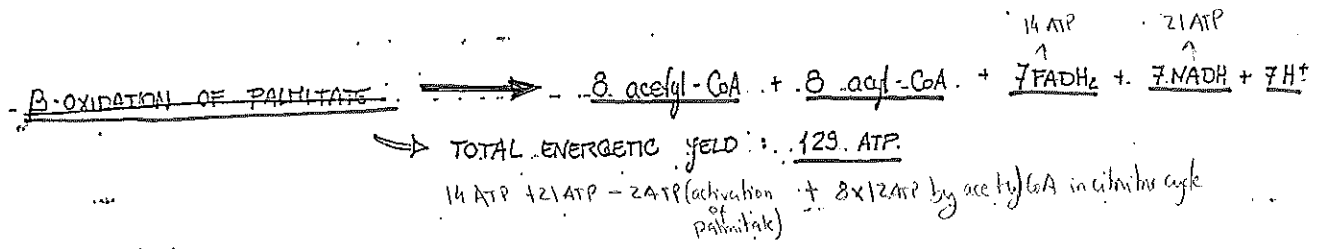 14 ATP 21 ATP
- β-OXIDATION OF PALMITATE → 8 acetyl-CoA + 8 acyl-CoA + 7 FADH₂ + 7 NADH + 7H⁺
⇒ TOTAL ENERGETIC YELD : 129 ATP.
14 ATP + 21 ATP - 2 ATP (activation of palmitate) + 8x12 ATP by acetyl CoA in cycle